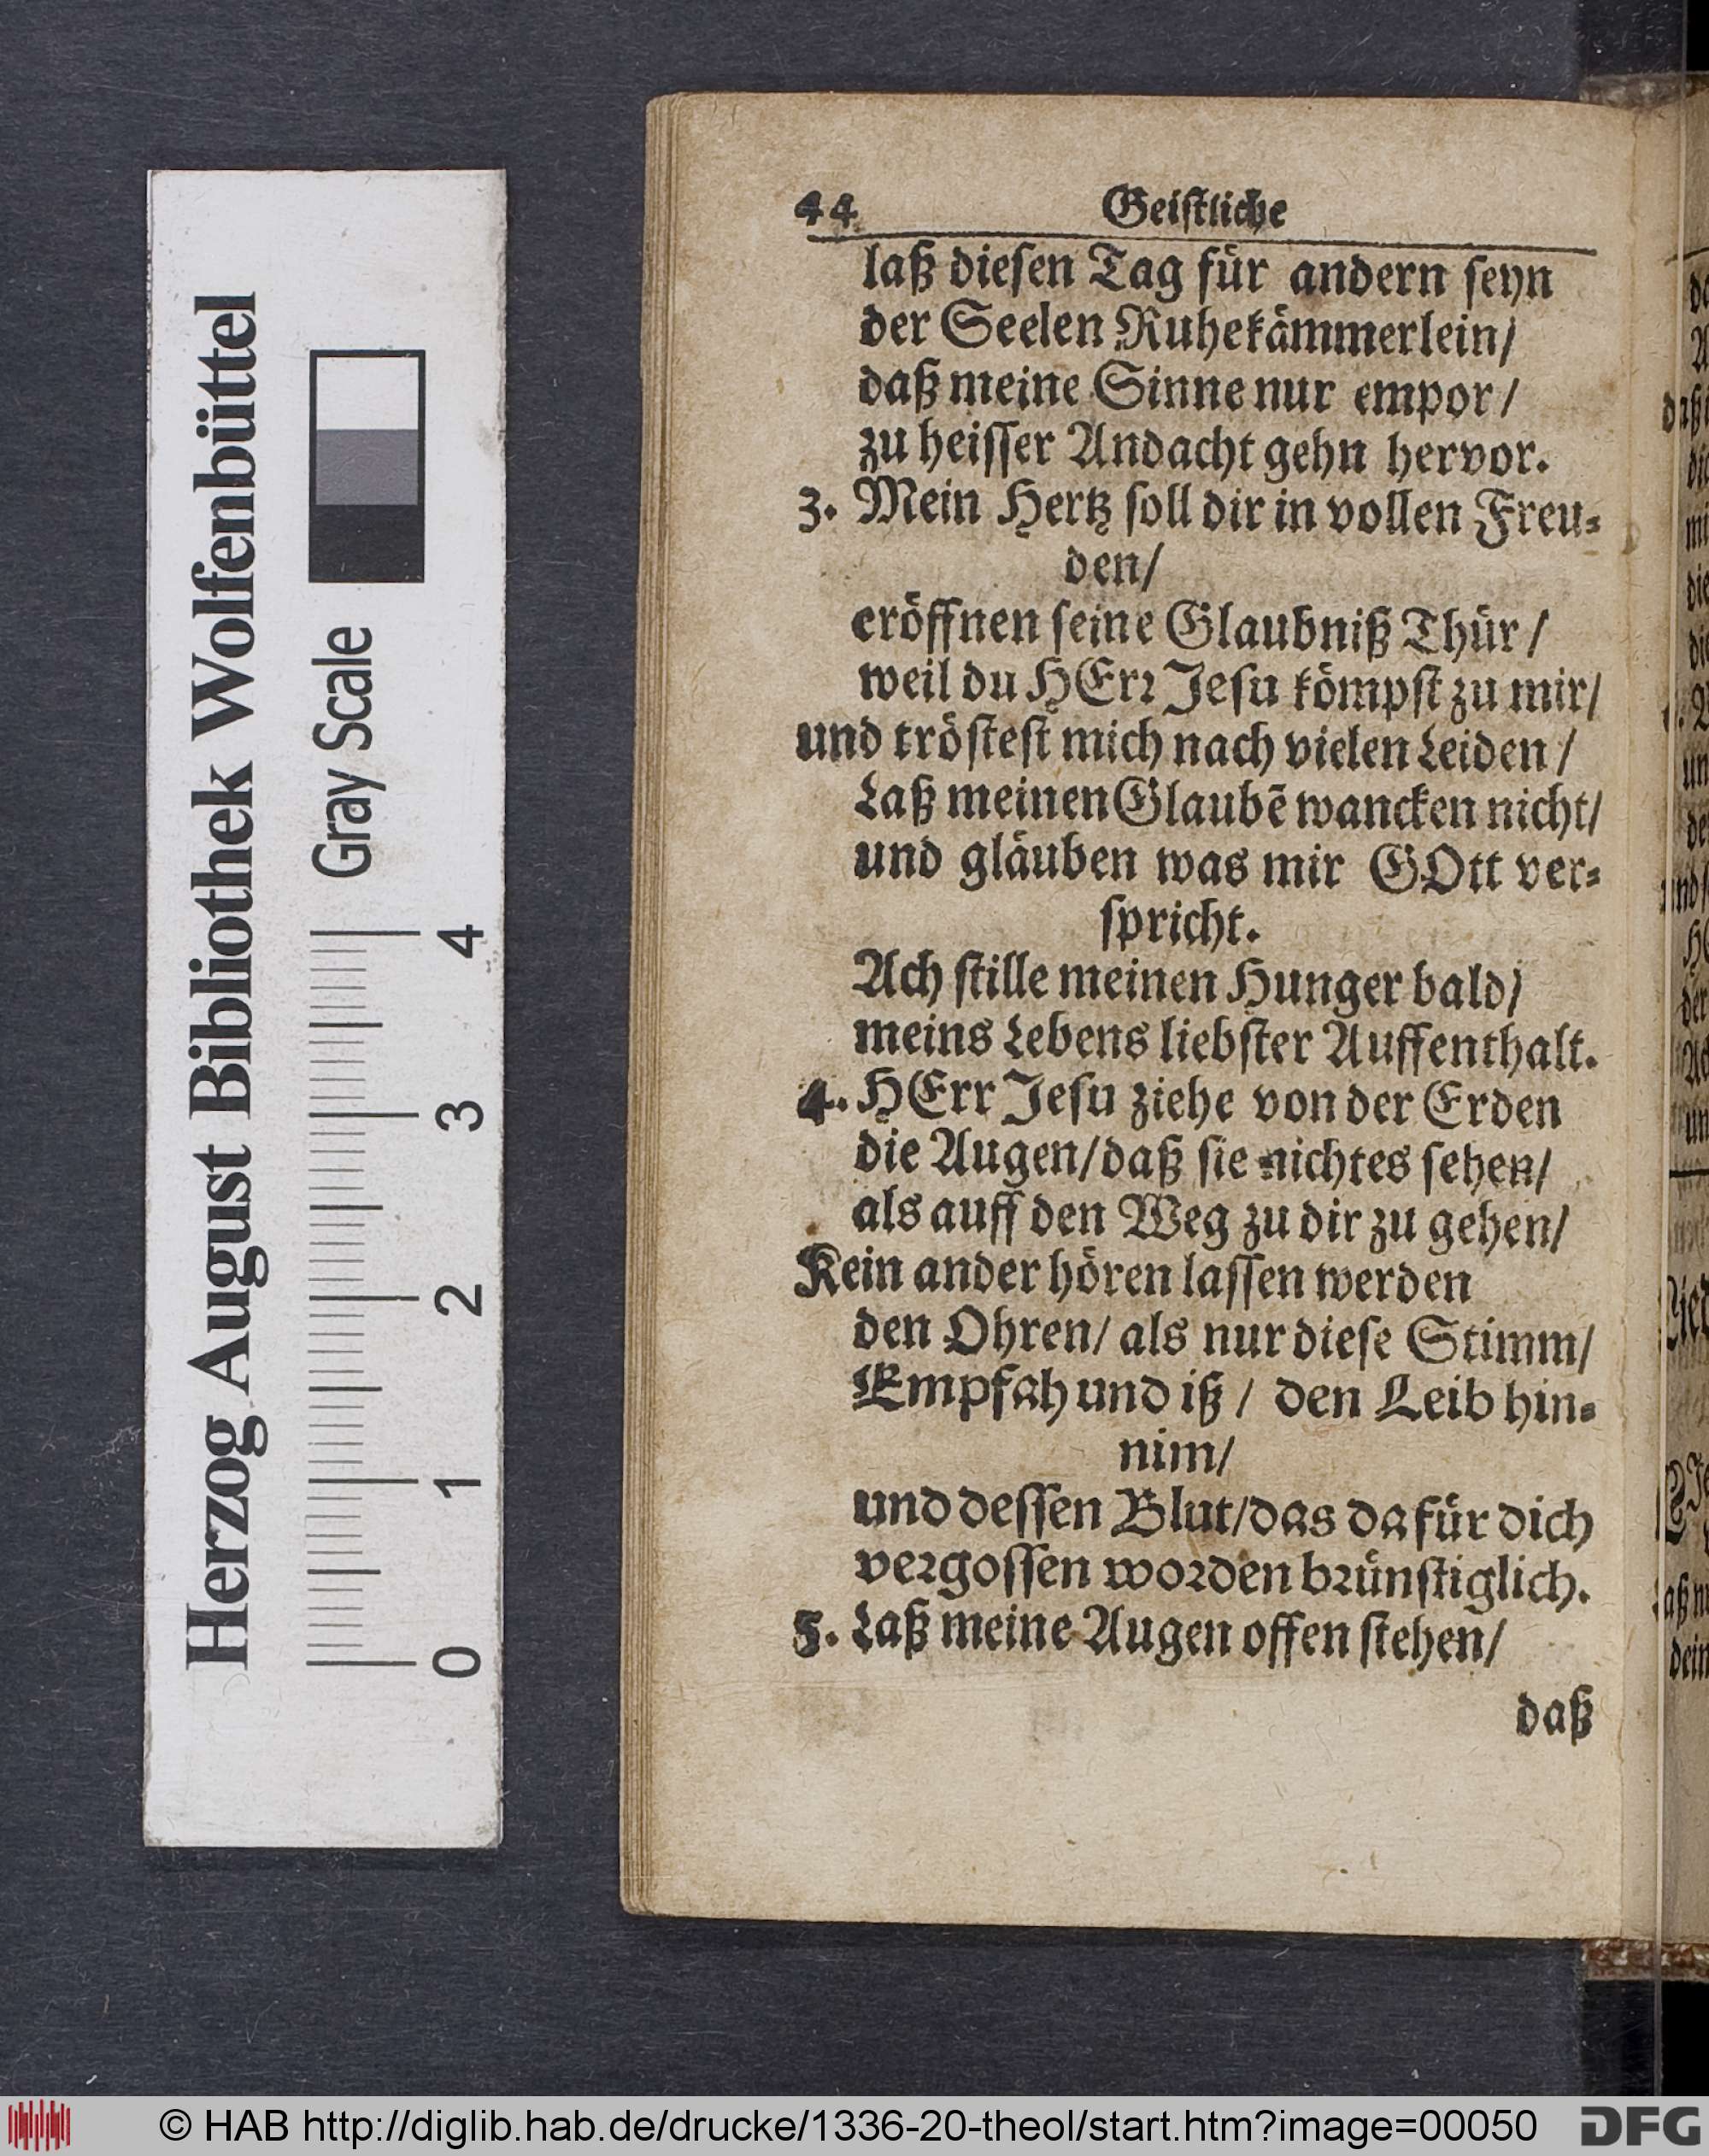 Herzog August Bibliothek Wolfenbüttel
Gray Scale
0 1 2 3 4
44 Geiſtliche
laß dieſen Tag für andern ſeyn
der Seelen Ruhekämmerlein/
daß meine Sinne nur empor/
zu heiſſer Andacht gehn hervor.
3. Mein Hertz ſoll dir in vollen Freu-
den/
eröffnen ſeine Glaubniß Thür/
weil du HErꝛ Jeſu kömpſt zu mir/
und tröſteſt mich nach vielen Leiden/
Laß meinen Glaubẽ wancken nicht/
und gläuben was mir GOtt ver-
ſpricht.
Ach ſtille meinen Hunger bald/
meins Lebens liebſter Auffenthalt.
4. HErr Jeſu ziehe von der Erden
die Augen/daß ſie nichtes ſehen/
als auff den Weg zu dir zu gehen/
Kein ander hören laſſen werden
den Ohren/ als nur dieſe Stimm/
Empfah und iß/ den Leib hin-
nim/
und deſſen Blut/das da für dich
veꝛgoſſen woꝛden bꝛünſtiglich.
5. Laß meine Augen offen ſtehen/
daß
© HAB http://diglib.hab.de/drucke/1336-20-theol/start.htm?image=00050
DFG